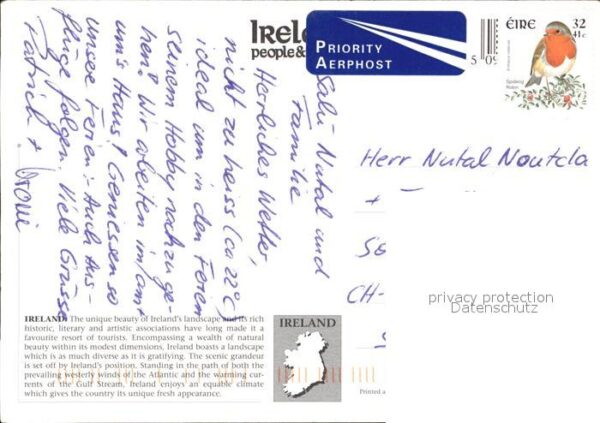 Irel
people &
PRIORITY
AERPHOST
5 09
ÉIRE 32
41c
Spideog
Robin
Salü Nutal und
Familie
Herrliches Wetter,
nicht zu heiss (ca 22°C)
ideal um in den Ferien
seinem Hobby nachzuge-
hen? Wir arbeiten im/am/
um's Haus! Geniessen so
unsere Ferien:- Auch Aus-
flüge folgen. Viele Grüsse
Patrick +
Herr Nutal Noutcla
+
CH-
privacy protection
Datenschutz
IRELAND: The unique beauty of Ireland's landscape and its rich
historic, literary and artistic associations have long made it a
favourite resort of tourists. Encompassing a wealth of natural
beauty within its modest dimensions, Ireland boasts a landscape
which is as much diverse as it is gratifying. The scenic grandeur
is set off by the island's position. Standing in the path of both the
prevailing westerly winds of the Atlantic and the warming cur-
rents of the Gulf Stream, Ireland enjoys an equable climate
which gives the country its unique fresh appearance.
IRELAND
Printed a